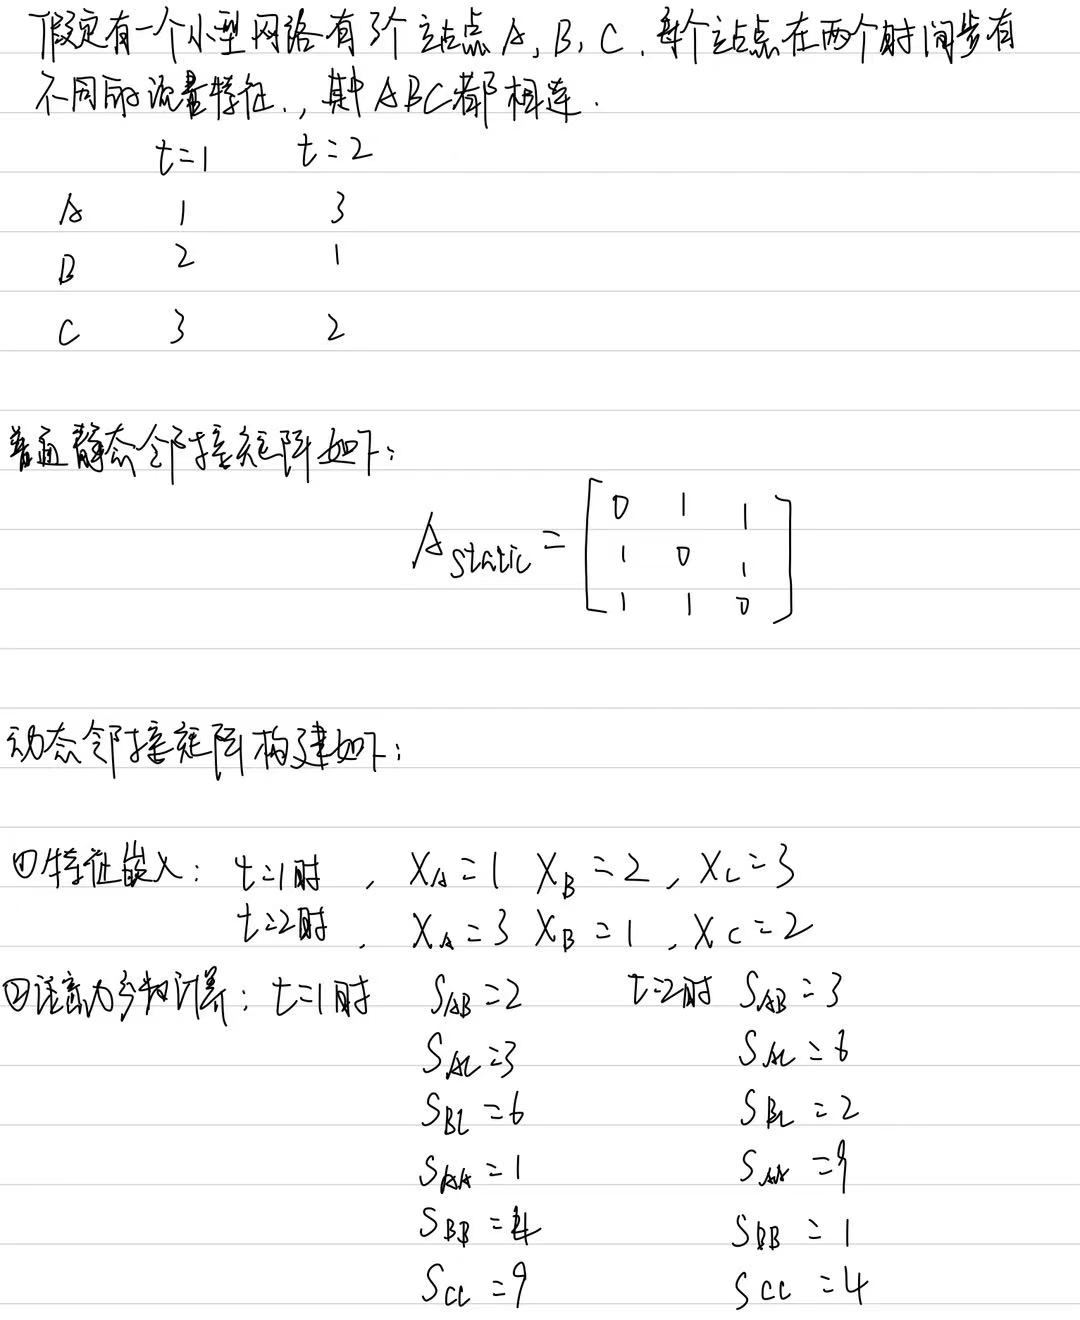 假定有一个小型网络有3个站点A,B,C.每个站点在两个时间步有
不同的流量特征.,其中ABC都相连.
t=1 t=2
A 1 3
B 2 1
C 3 2
普通静态邻接矩阵如下:
A static = [ 0 1 1
1 0 1
1 1 0 ]
动态邻接矩阵构建如下:
①特征嵌入: t=1时, XA=1 XB=2, XC=3
t=2时, XA=3 XB=1, XC=2
②注意力分数计算: t=1时 SAB=2 t=2时 SAB=3
SAC=3 SAC=6
SBC=6 SBC=2
SAA=1 SAA=9
SBB=4 SBB=1
SCC=9 SCC=4